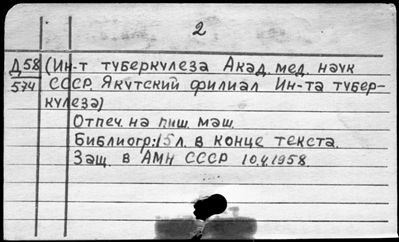 2
Д58 (Ин-т туберкулеза Акад. мед. наук
574 СССР. Якутский филиал Ин-та тубер-
кулеза)
Отпеч. на пиш. маш.
Библиогр: 15 л. в конце текста.
Защ. в АМН СССР 10.4.1958.